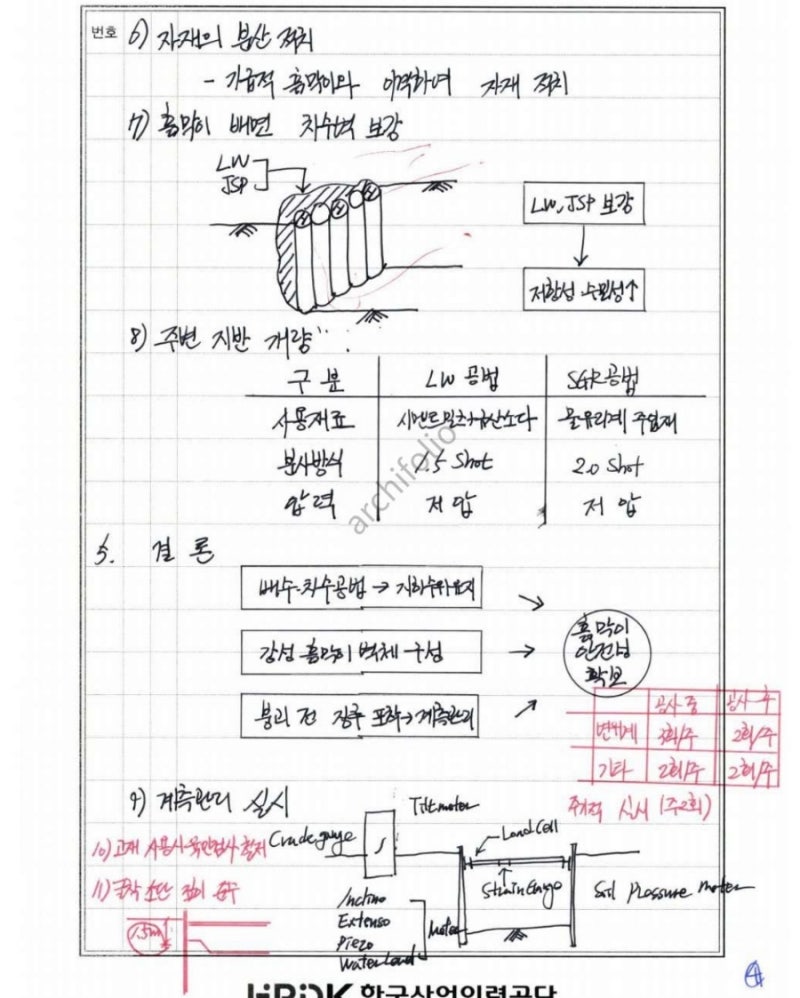 번호
6) 자재의 분산 적치
- 가급적 흙막이와 이격하여 자재 적치
7) 흙막이 배면 차수벽 보강
LW
JSP
LW, JSP 보강
저항성 수밀성↑
8) 주변 지반 개량
구분 LW 공법 SGR공법
사용재료 시멘트밀크+규산소다 물유리계 주입재
분사방식 1.5 Shot 2.0 Shot
압력 저압 저압
archifolio
5. 결론
배수·차수공법 → 지하수위유지
강성 흙막이 벽체 구성
붕괴 전 징후 포착 → 계측관리
흙막이
안전성
확보
공사 중 공사 후
변위계 3회/주 2회/주
기타 2회/주 2회/주
9) 계측관리 실시
주기적 실시 (주2회)
10) 고재 사용시 육안검사 철저
11) 굴착 소단 깊이 준수
1.5m
Crackgauge
Tiltmeter
Load Cell
Strain Gauge
Soil Pressure meter
Inclino
Extenso
Piezo
Water Level
Meter
한국산업인력공단
4